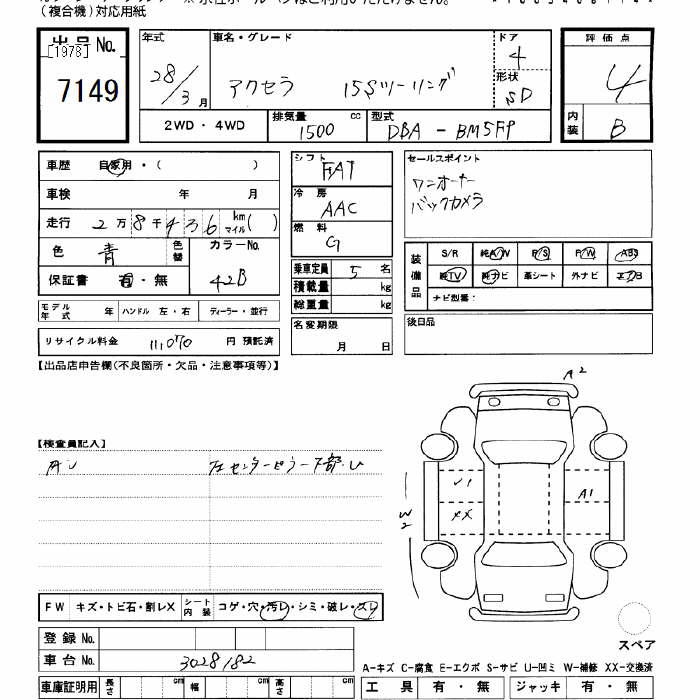 (複合機)対応用紙
出品No.
[1978]
7149
年式
28/3月
車名・グレード
アクセラ 15Sツーリング
ドア
4
形状
SD
評価点
4
内装
B
2WD・4WD
排気量
1500 cc
型式
DBA-BM5FP
車歴 自家用・( )
車検 年 月
走行 2万8千436 km マイル( )
色 青 色替 カラーNo.
42B
保証書 有・無
モデル年式 年 ハンドル 左・右 ディーラー・並行
リサイクル料金 11,070 円 預託済
シフト
FAT
冷房
AAC
燃料
G
乗車定員 5 名
積載量 kg
総重量 kg
名変期限
月 日
セールスポイント
ワンオーナー
バックカメラ
装備品
S/R 純A/W P/S P/W ABS
純TV 純ナビ 革シート 外ナビ エアB
ナビ型番:
後日品
【出品店申告欄(不良箇所・欠品・注意事項等)】
【検査員記入】
左センターピラー下部・U
A2
U1
XX
A1
W2
FW キズ・トビ石・割レX シート内装 コゲ・穴・汚レ・シミ・破レ・スレ
登録No.
車台No. 3028182
車庫証明用 長さ cm 幅 cm 高さ cm
スペア
A-キズ C-腐食 E-エクボ S-サビ U-凹ミ W-補修 XX-交換済
工具 有・無 ジャッキ 有・無